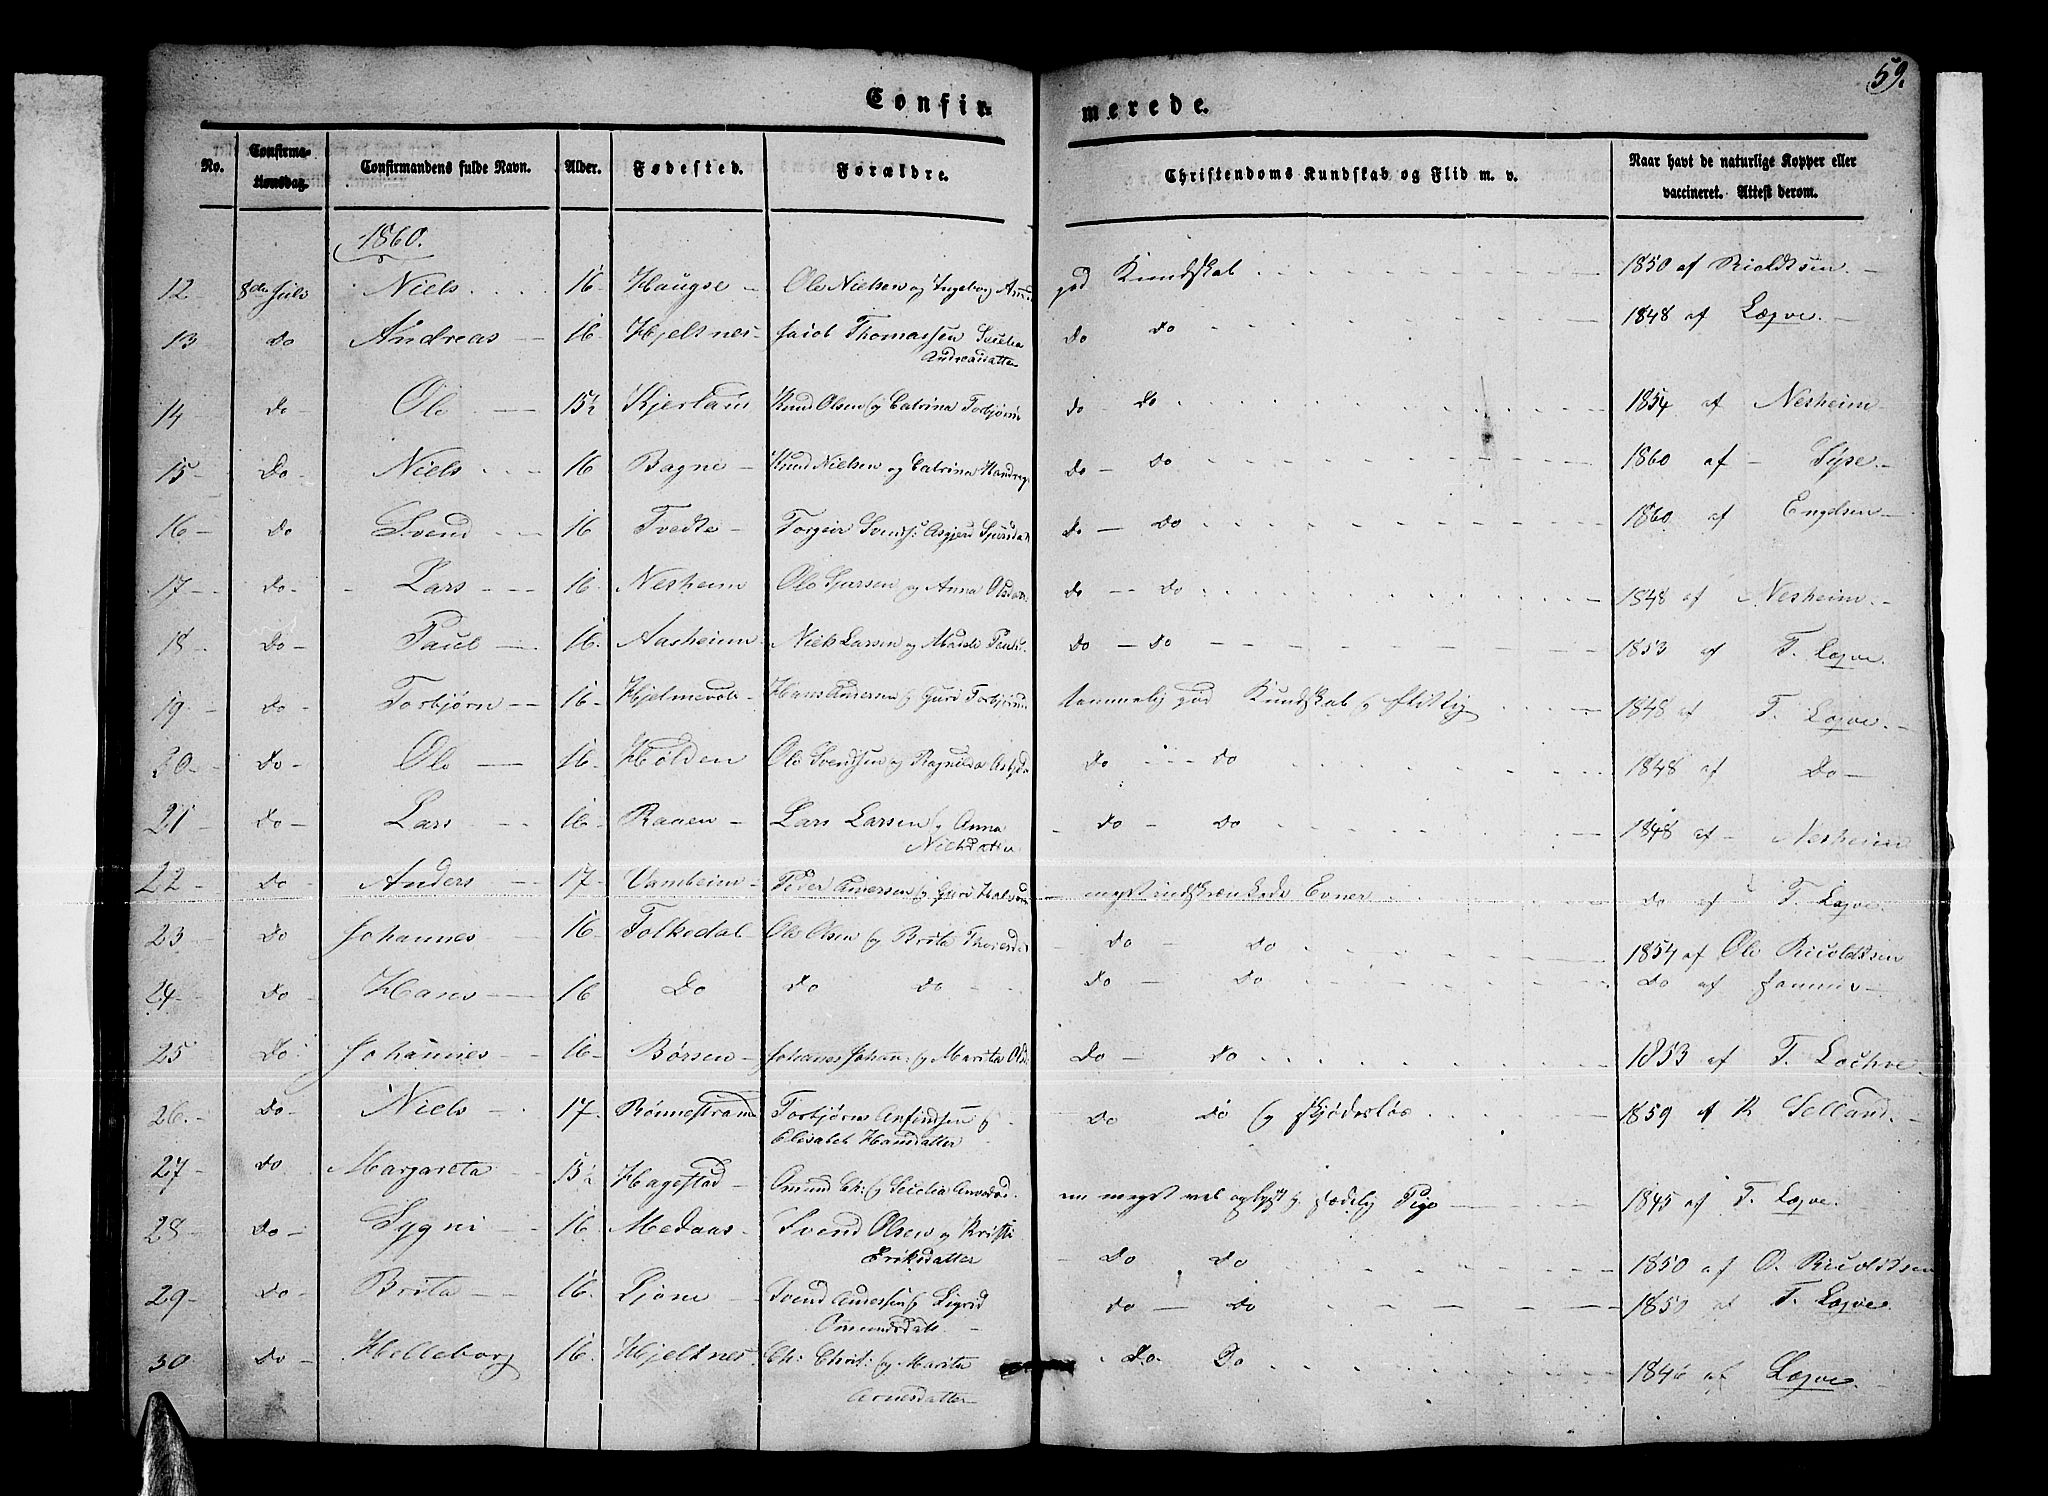 59.
Confir- merede.
No. Confirmationsdag. Confirmandens fulde Navn. Alder. Fødested. Forældre. Christendoms Kundskab og Flid m. v. Naar havt de naturlige Kopper eller vaccineret. Attest derom.
1860.
12 8de Juli Niels 16 Haugse Ole Nielsen og Ingeborg god Kundskab 1850 af
13 Do Andreas 16 Hjeltnes Jacob Thomassen Secelia Do Do 1848 af Lægve.
Andreasdatter
14 Do Ole 15½ Kjerland Knud Olsen og Catrina Torbjørns Do Do 1854 af Nesheim
15 Do Niels 16 Bagne Knud Nielsen og Catrina Do Do 1860 af Syse
16 Do Svend 16 Tvedte Torgeir Svends: Do Do 1860 af Engelsen
17 Do Lars 16. Nesheim Ole og Anna Olsdatter Do Do 1848 af Nesheim
18 Do Paul 16. Aasheim Niels Larsen og Do Do 1853 af T. Lægve.
19 Do Torbjørn 16 Hjelmevold Hans og Guri temmelig god Kundskab og flittig 1848 af T. Lægve
20 Do Ole 16. Hølden Ole Svendsen og Do Do 1848 af Do
21 Do Lars 16 Raaen Lars Larsen og Anna Do Do 1848 af Nesheim
Nielsdatter
22 Do Anders 17 Vambeim Peder og Guri meget indskrænkede Evner Do af T. Lægve.
23 Do Johannes 16 Folkedal Ole Olsen og Brita Do Do 1854 af Ole
24 Do Hans 16 Do Do Do Do Do Do af samme
25 Do Johannes 16 Børsen Johans Johan: og Marita Do Do 1853 af T. Lochve
26. Do Niels 17. Rønnestrand Torbjørn og Do Do og skjødesløs 1859 af R Selland
Elisabet Hansdatter
27 Do Margareta 15½ Hagestad Omund Ch: og Secelia en meget vel oplyst og sædelig Pige 1845 af T. Lægve.
28 Do Sygni 16 Medaas Svend Olsen og Kristi Do Do 1850 af O.
Eriksdatter
29 Do Brita 16. Djøne Svend og Sigrid Do Do 1850 af T. Lægve
Omundsdatt.
30 Do Helleborg 16. Hjeltnes Ch: Christ: og Marita Do. Do 1846 af Lægve.
Arnesdatter